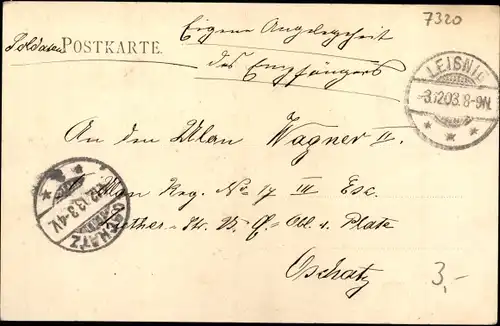 7320
Soldaten POSTKARTE.
Eigene Angelegenheit
des Empfängers
LEISNIG
-3.12.03. 8-9N.
An den Ulan Wagner II.
Ulan Reg. No 17 III Esc.
OSCHATZ
Oschatz
3,-